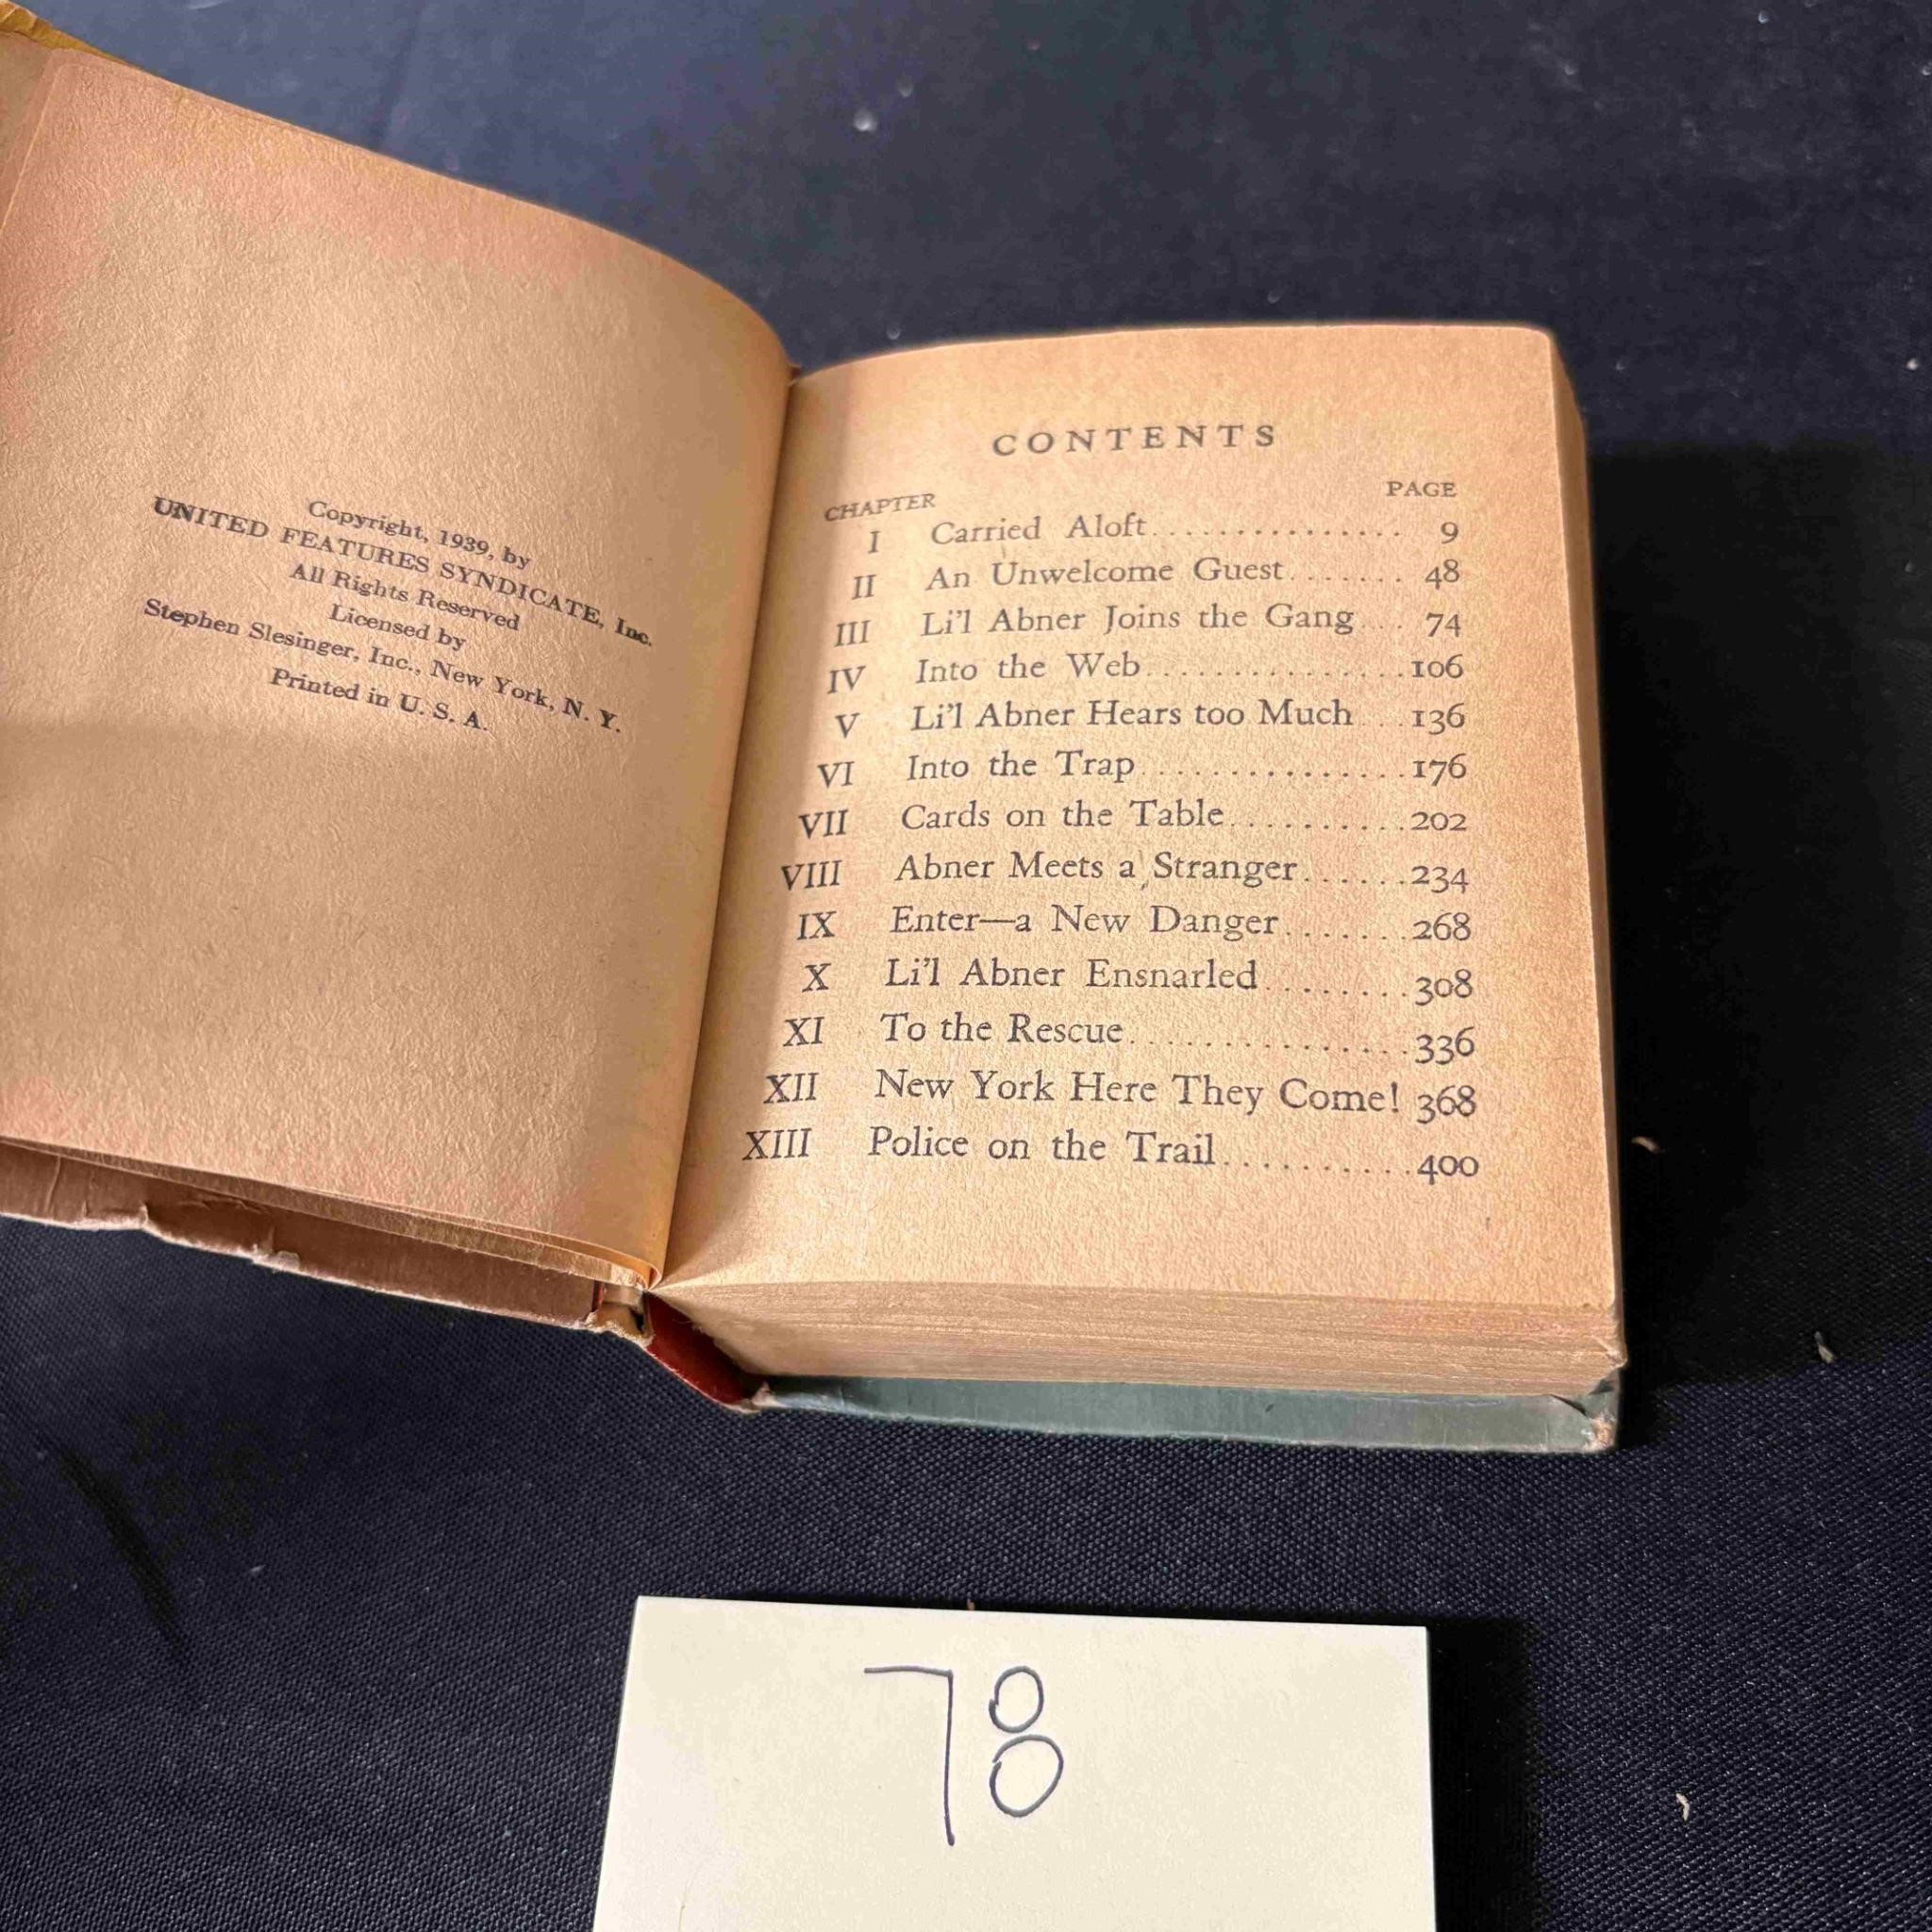 Copyright, 1939, by
UNITED FEATURES SYNDICATE, Inc.
All Rights Reserved
Licensed by
Stephen Slesinger, Inc., New York, N. Y.
Printed in U. S. A.
CONTENTS
CHAPTER PAGE
I Carried Aloft............... 9
II An Unwelcome Guest....... 48
III Li'l Abner Joins the Gang... 74
IV Into the Web...............106
V Li'l Abner Hears too Much...136
VI Into the Trap...............176
VII Cards on the Table..........202
VIII Abner Meets a Stranger......234
IX Enter—a New Danger.......268
X Li'l Abner Ensnarled........308
XI To the Rescue...............336
XII New York Here They Come! 368
XIII Police on the Trail..........400
78